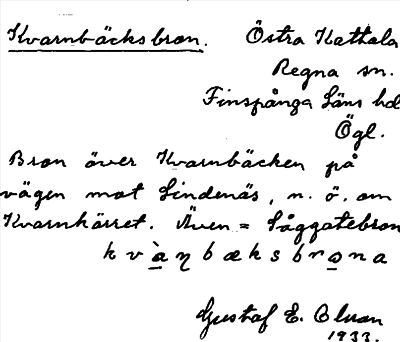 Kvarnbäcksbron. Östra Kattala
Regna sn.
Finspånga Läns hd
Ögl.
Bron över Kvarnbäcken på
vägen mot Lindenäs, n. ö. om
Kvarnkärret. Även = Såggatebron
kvàŋbæksbrona
Gustaf E. Olson
1933.